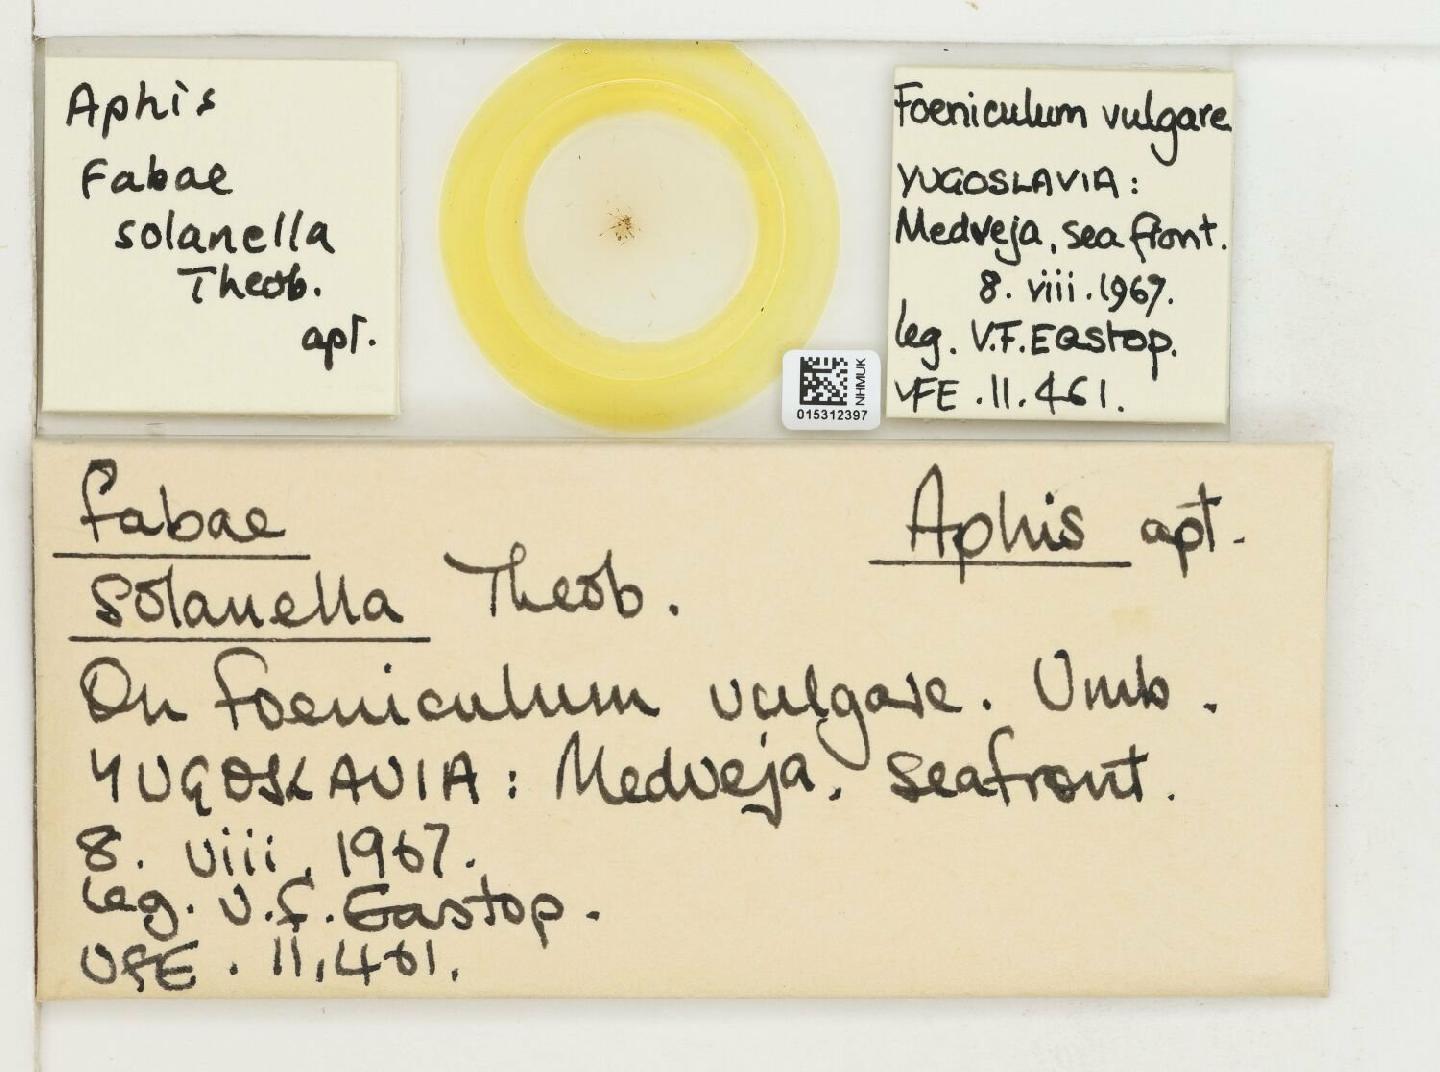 Aphis
Fabae
solanella
Theob.
apt.
NHMUK
015312397
Foeniculum vulgare
YUGOSLAVIA:
Medveja, sea front.
8. viii. 1967.
leg. V.F. Eastop.
VFE. 11. 461.
fabae
Aphis apt.
solanella Theob.
On Foeniculum vulgare. Umb.
YUGOSLAVIA: Medveja. seafront.
8. viii. 1967.
leg. V.F. Eastop.
VFE. 11,461.